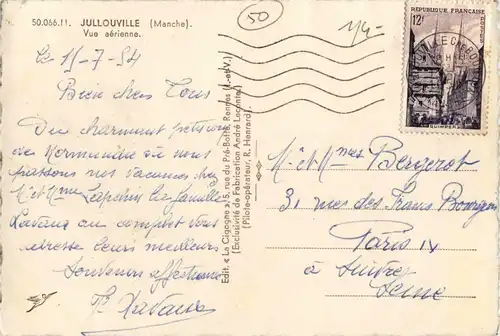 50.066.11. JULLOUVILLE (Manche).
Vue aérienne.
50
Le 15/7/54
Bien chers Tous
Du charmant petit coin
de Normandie où nous
passons nos vacances chez
Mr et Mme la famille
au complet vous
adresse leurs meilleurs
souvenirs affectueux
Edit. « La Cigogne » 5, rue du Pré-Botté Rennes (I.-et-V.)
(Exclusivité de Fabrication André Leconte)
(Pilote-opérateur, R. Henrard)
RÉPUBLIQUE FRANÇAISE
12f
Mr et Mmes Bergerot
31 rue des Francs Bourgeois
Paris IV
à suivre
Seine